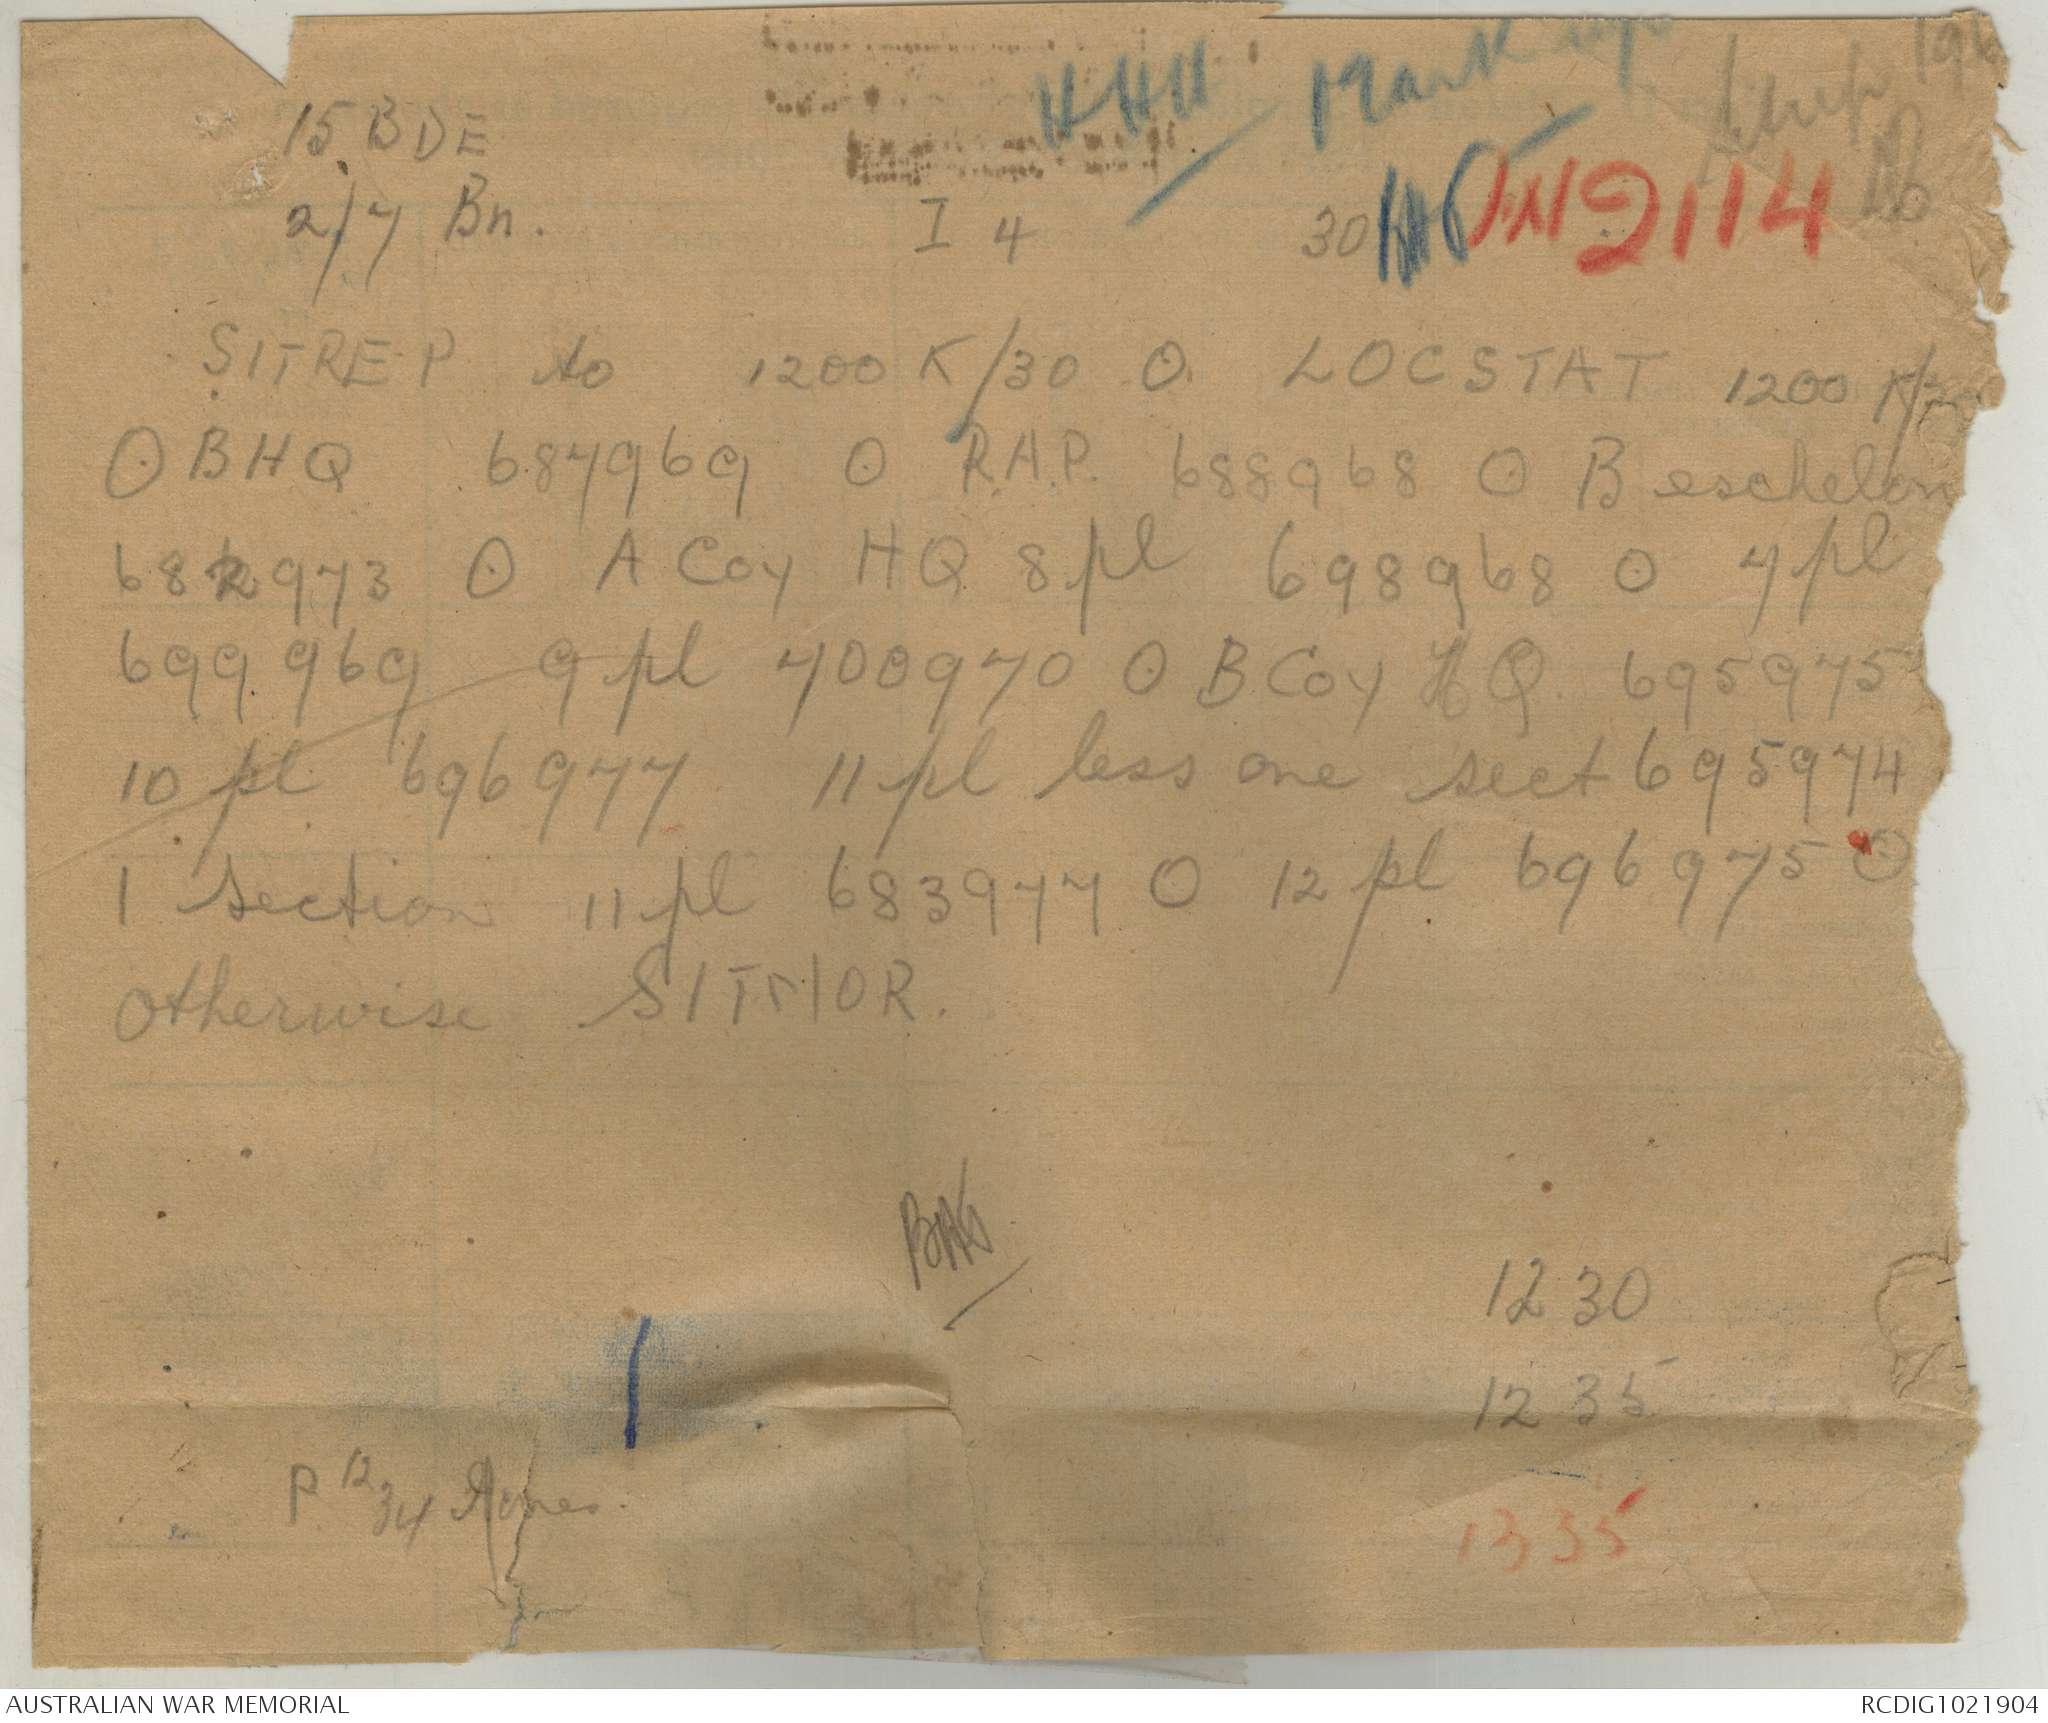 15 BDE
2/7 Bn. I 4 30
SITREP to 1200 K/30 O LOCSTAT 1200 K/30
O BHQ 687969 O R.A.P. 688968 O B eschelon
682973 O A Coy HQ 8 pl 698968 O 7 pl
699969 9 pl 700970 O B Coy HQ 695975
10 pl 696977 11 pl less one sect 695974
1 section 11 pl 683977 O 12 pl 696975 O
otherwise SITNOR.
1230
1235
P 12 34
1335
AUSTRALIAN WAR MEMORIAL RCDIG1021904